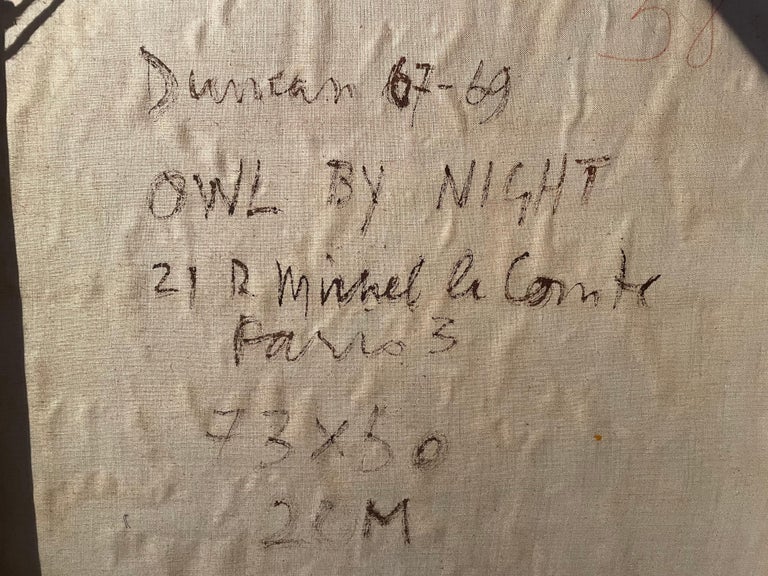 58
Duncan 67-69
OWL BY NIGHT
21 R Michel le Comte
Paris 3
73x50
20M